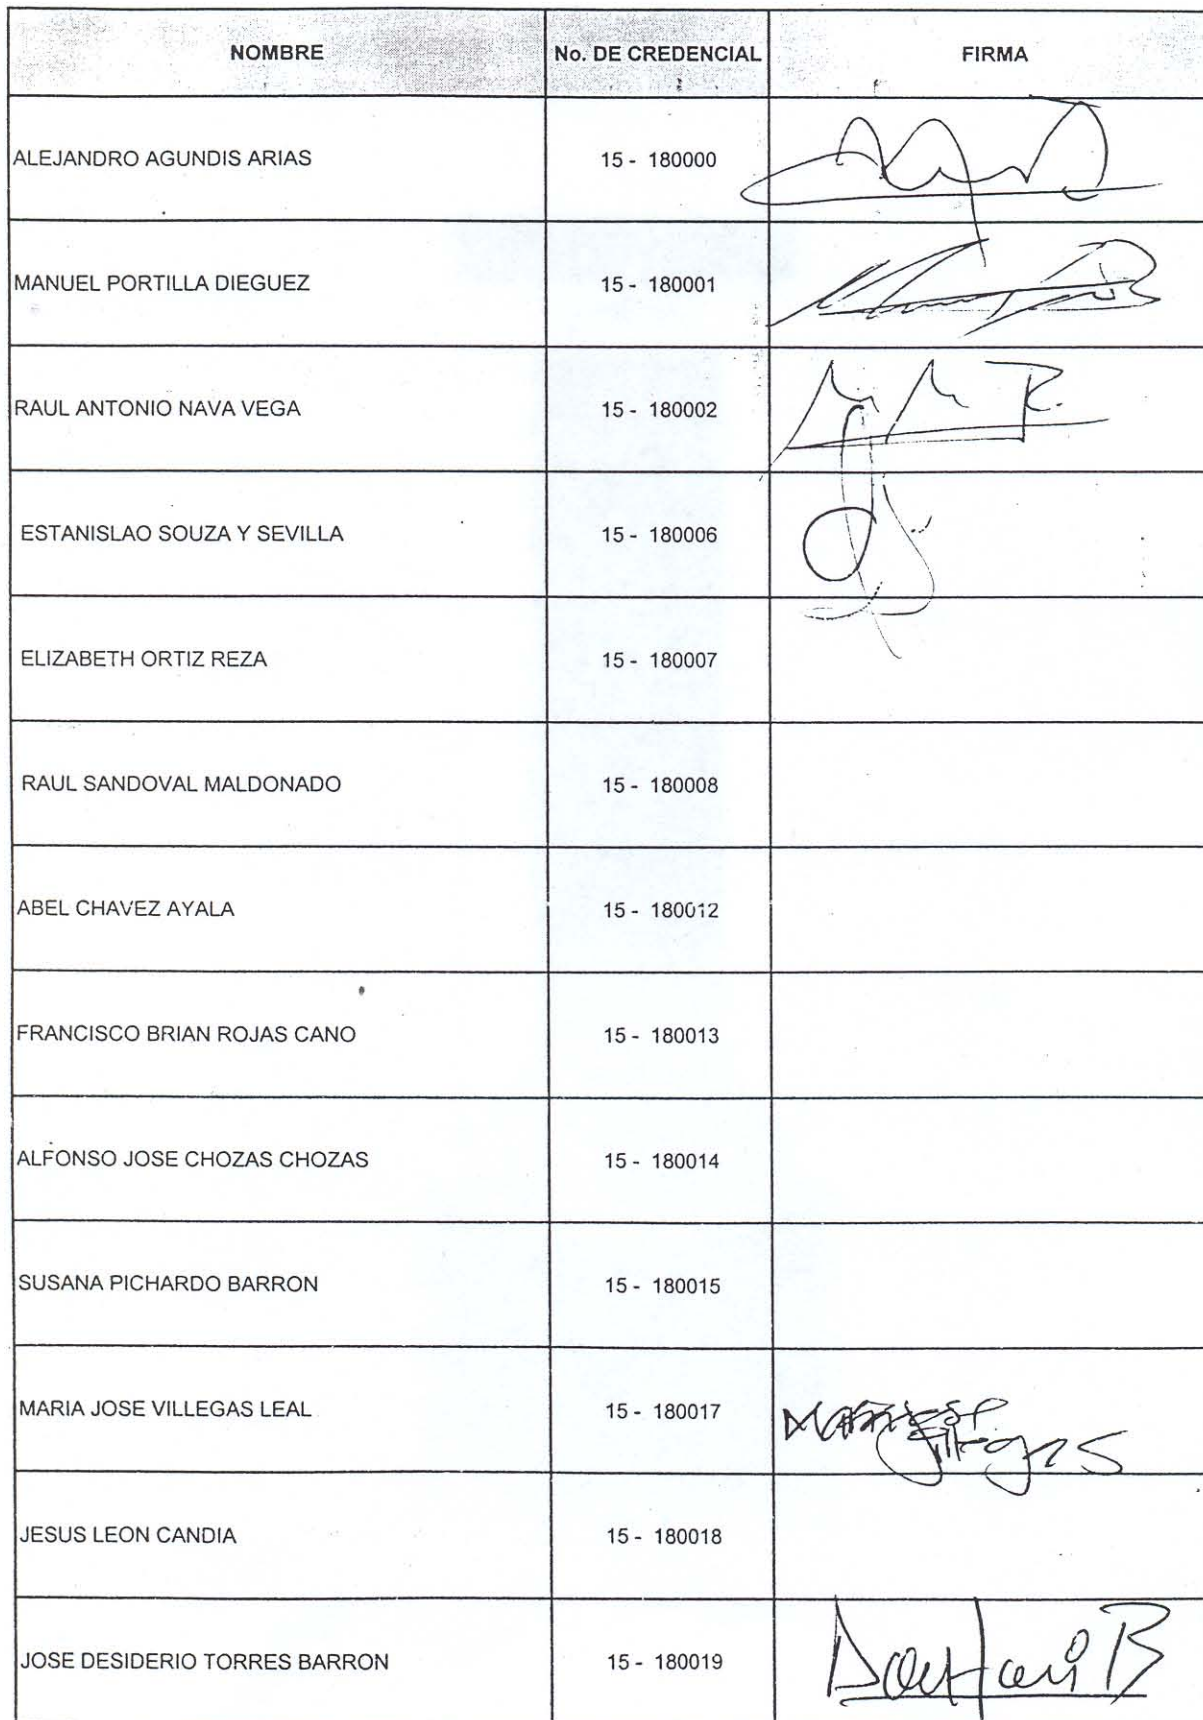 NOMBRE No. DE CREDENCIAL FIRMA
ALEJANDRO AGUNDIS ARIAS 15 - 180000
MANUEL PORTILLA DIEGUEZ 15 - 180001
RAUL ANTONIO NAVA VEGA 15 - 180002
ESTANISLAO SOUZA Y SEVILLA 15 - 180006
ELIZABETH ORTIZ REZA 15 - 180007
RAUL SANDOVAL MALDONADO 15 - 180008
ABEL CHAVEZ AYALA 15 - 180012
FRANCISCO BRIAN ROJAS CANO 15 - 180013
ALFONSO JOSE CHOZAS CHOZAS 15 - 180014
SUSANA PICHARDO BARRON 15 - 180015
MARIA JOSE VILLEGAS LEAL 15 - 180017
JESUS LEON CANDIA 15 - 180018
JOSE DESIDERIO TORRES BARRON 15 - 180019